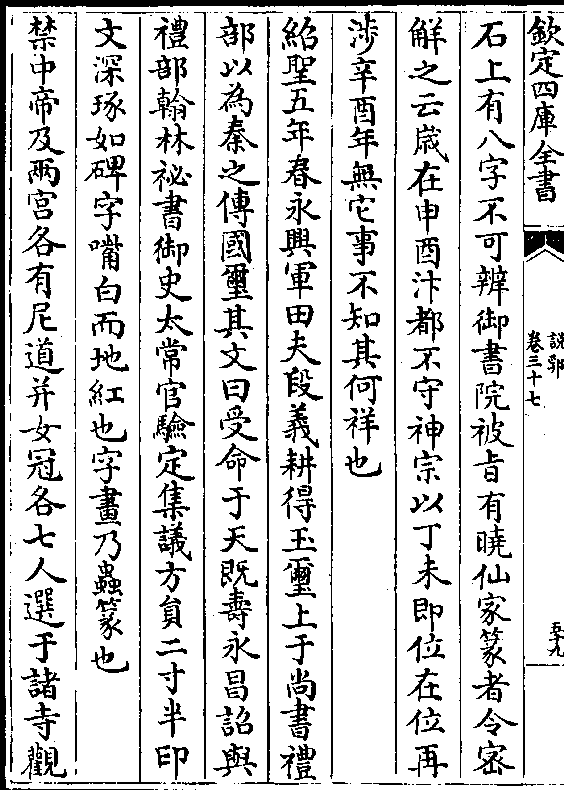 欽定四庫全書
說郛
卷三十七
五十九
石上有八字不可辨御書院被㫖有曉仙家篆者令密
解之云歳在申酉汴都不守神宗以丁未即位在位再
涉辛酉年無它事不知其何祥也
紹聖五年春永興軍田夫段義耕得玉璽上于尚書禮
部以為秦之傳國璽其文曰受命于天既壽永昌詔與
禮部翰林祕書御史太常官驗定集議方負二寸半印
文深琢如碑字嘴白而地紅也字畫乃蟲篆也
禁中帝及兩宫各有尼道并女冠各七人選于諸寺觀